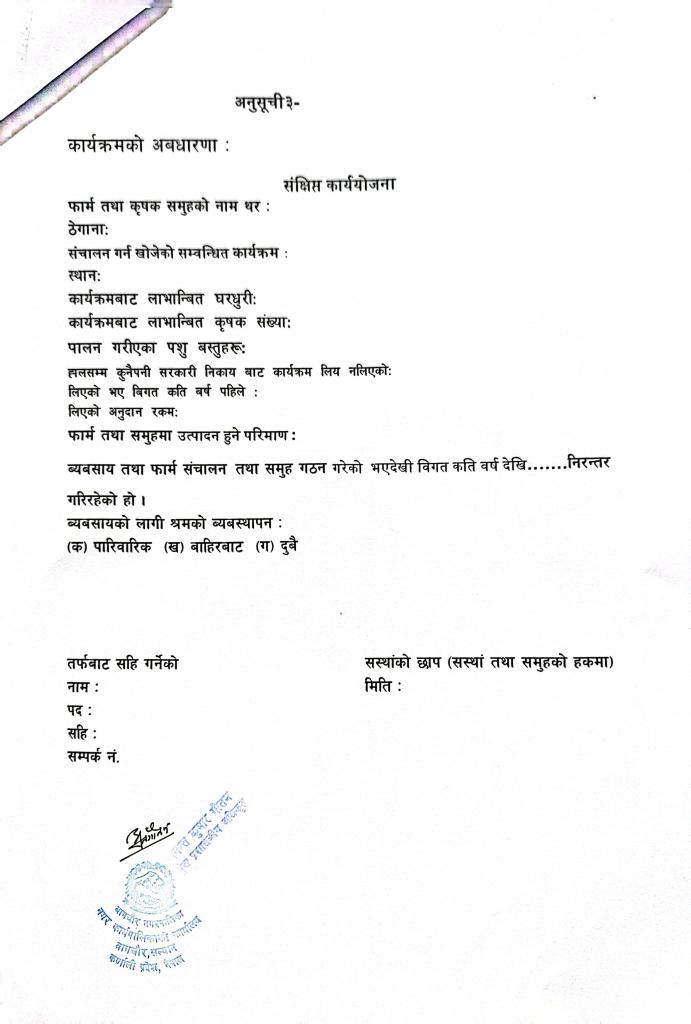 अनुसूची ३-
कार्यक्रमको अबधारणा :
संक्षिप्त कार्ययोजना
फार्म तथा कृषक समुहको नाम थर :
ठेगाना:
संचालन गर्न खोजेको सम्वन्धित कार्यक्रम :
स्थान:
कार्यक्रमबाट लाभान्बित घरधुरी:
कार्यक्रमबाट लाभान्बित कृषक संख्या:
पालन गरीएका पशु बस्तुहरू:
हालसम्म कुनैपनी सरकारी निकाय बाट कार्यक्रम लिय नलिएको:
लिएको भए बिगत कति बर्ष पहिले :
लिएको अनुदान रकम:
फार्म तथा समुहमा उत्पादन हुने परिमाण :
ब्यबसाय तथा फार्म संचालन तथा समुह गठन गरेको भएदेखी विगत कति वर्ष देखि.......निरन्तर
गरिरहेको हो ।
ब्यबसायको लागी श्रमको ब्यबस्थापन :
(क) पारिवारिक (ख) बाहिरबाट (ग) दुबै
तर्फबाट सहि गर्नेको
सस्थांको छाप (सस्थां तथा समुहको हकमा)
नाम :
मिति :
पद :
सहि :
सम्पर्क नं.
कुमार गौतम
प्रशासकीय अधिकृत
बागचौर नगरपालिका
नगर कार्यपालिकाको कार्यालय
बागचौर, सल्यान
कर्णाली प्रदेश, नेपाल